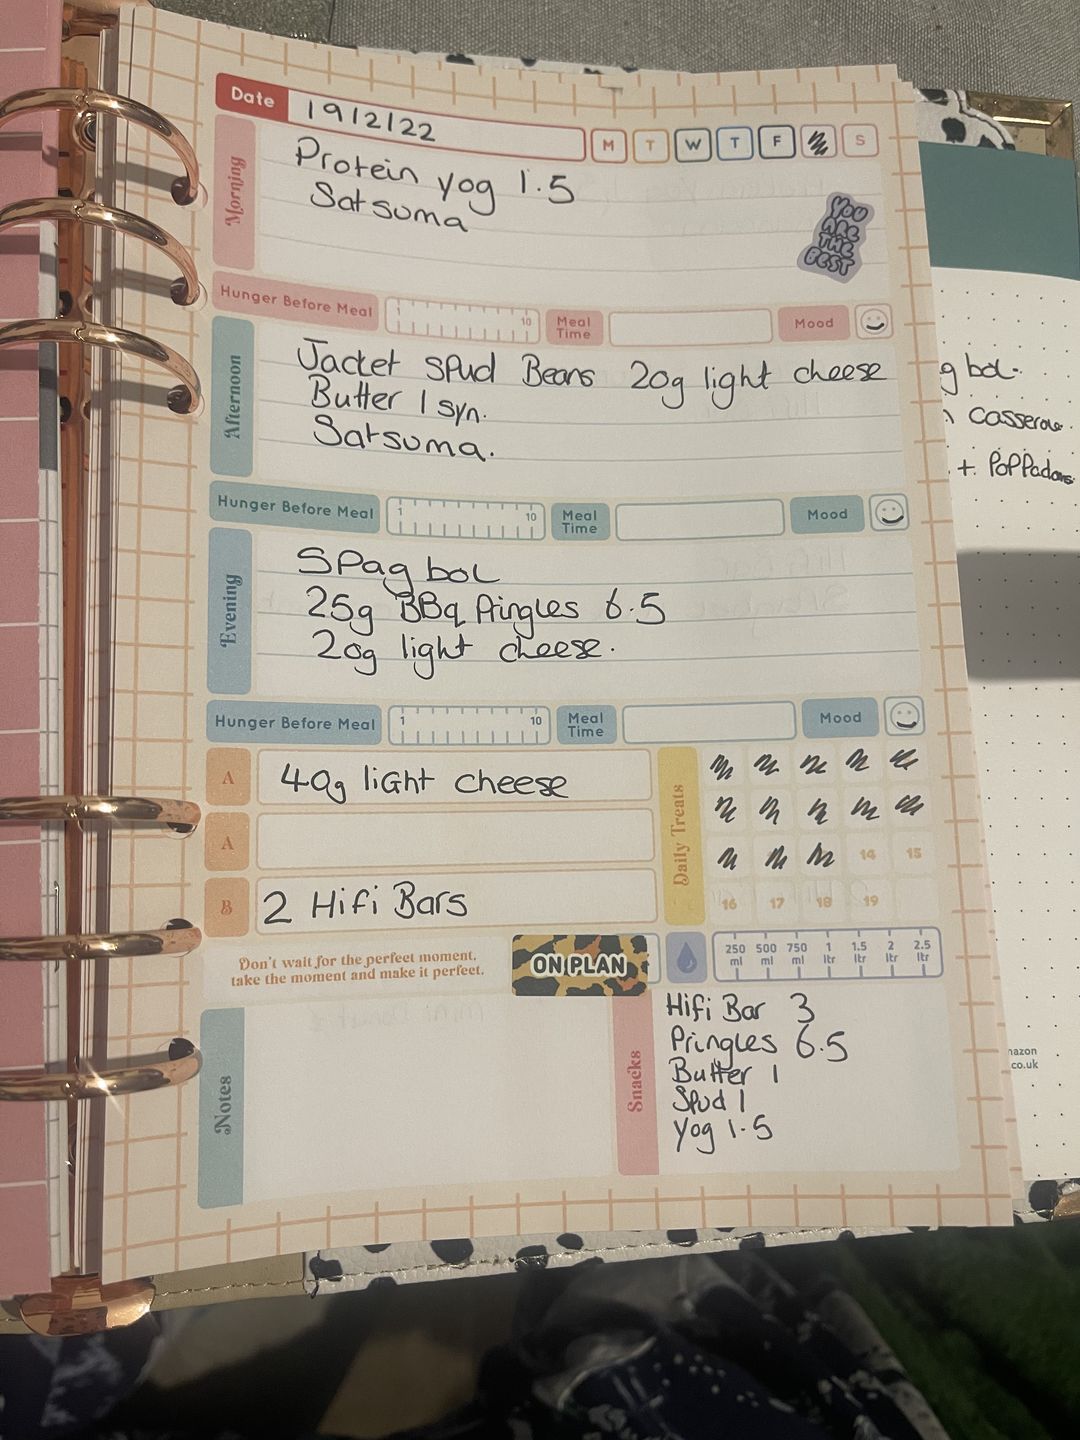 Date 19/2/22 M T W T F S
Morning
Protein yog 1.5
Satsuma
YOU
ARE
THE
BEST
Hunger Before Meal 1 10 Meal Time Mood
Afternoon
Jacket Spud Beans 20g light cheese
Butter 1 syn.
Satsuma.
Hunger Before Meal 1 10 Meal Time Mood
Evening
Spag bol
25g BBq Pringles 6.5
20g light cheese.
Hunger Before Meal 1 10 Meal Time Mood
A 40g light cheese
A
B 2 Hifi Bars
Daily Treats
14 15
16 17 18 19
Don't wait for the perfect moment,
take the moment and make it perfect.
ON PLAN
250 ml 500 ml 750 ml 1 ltr 1.5 ltr 2 ltr 2.5 ltr
Notes
Snacks
Hifi Bar 3
Pringles 6.5
Butter 1
Spud 1
Yog 1.5
g bol.
casserole.
+ Poppadoms
co.uk